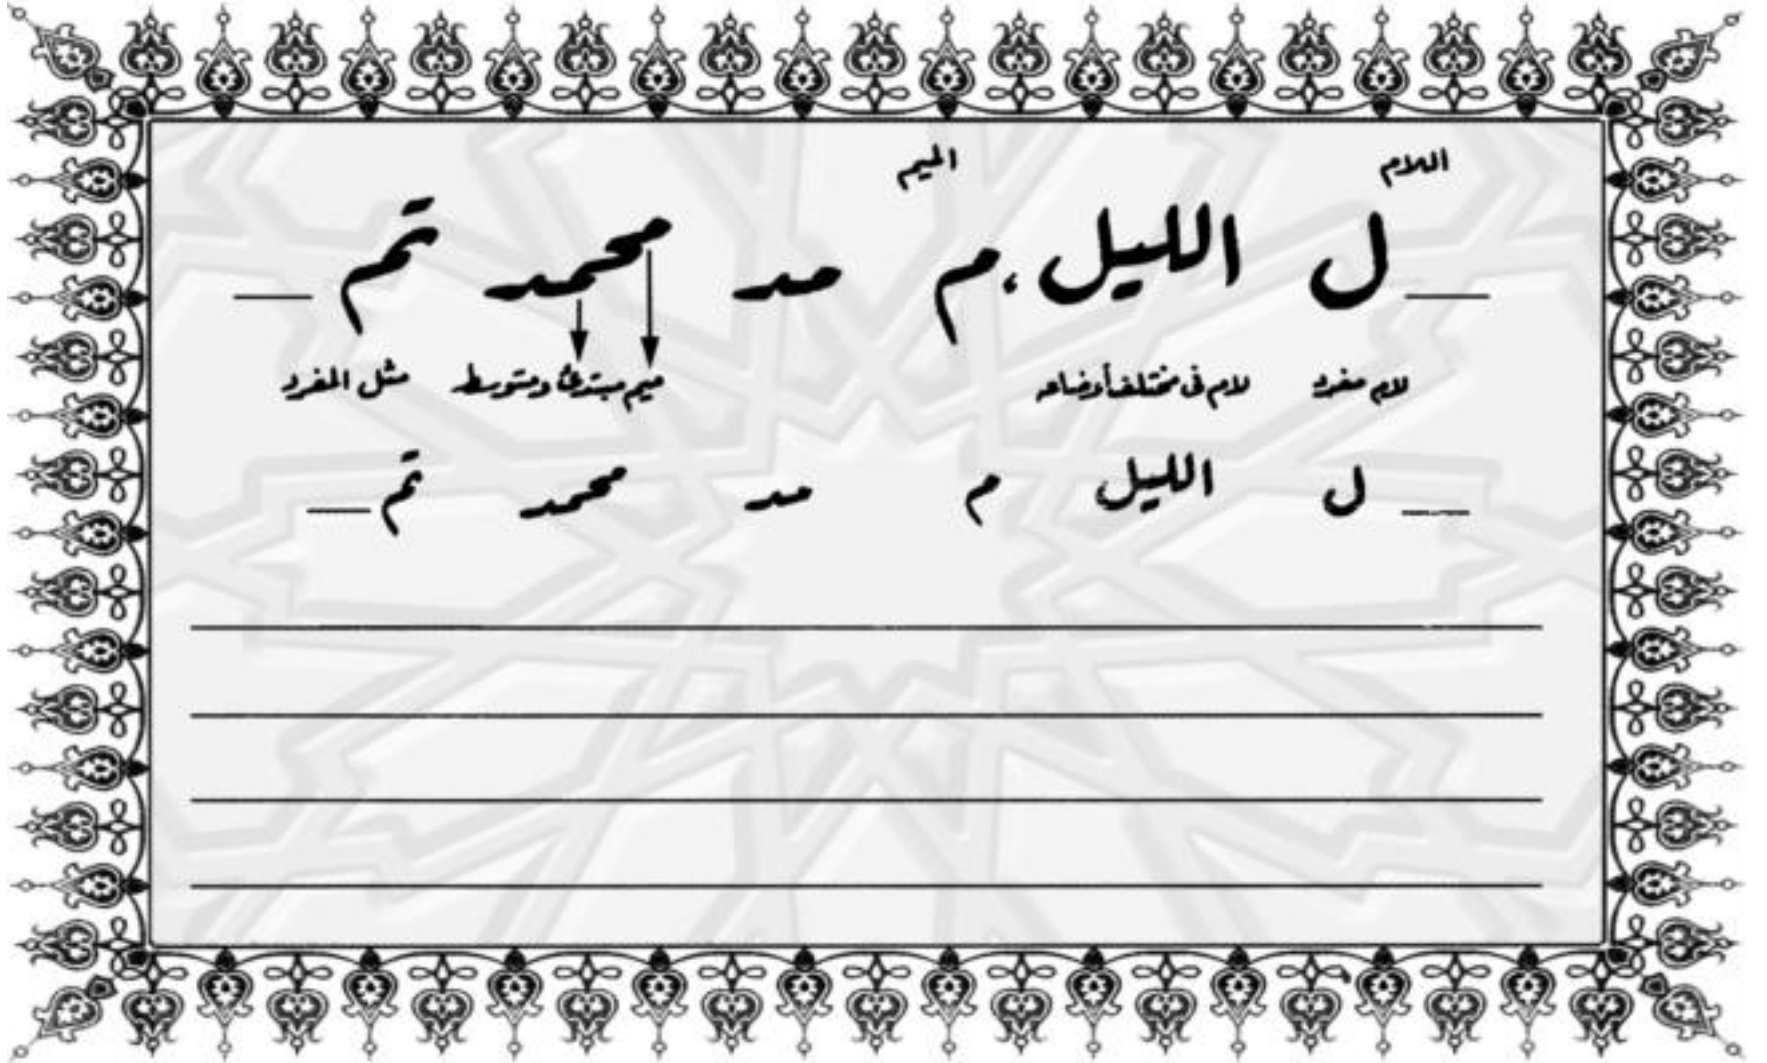 اللام الميم
ل الليل، م مد محمد تم
لام مفرد لام في مختلف أوضاعه ميم مبتدئة ومتوسطة مثل المفرد
ل الليل م مد محمد تم